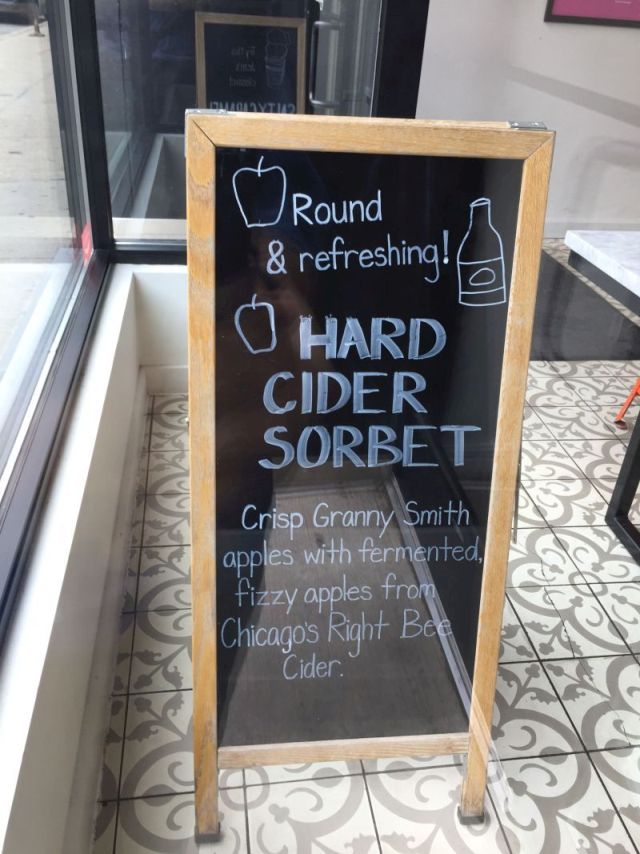 Try the
SALTY CARAMEL
Round
& refreshing!
HARD
CIDER
SORBET
Crisp Granny Smith
apples with fermented,
fizzy apples from
Chicago's Right Bee
Cider.